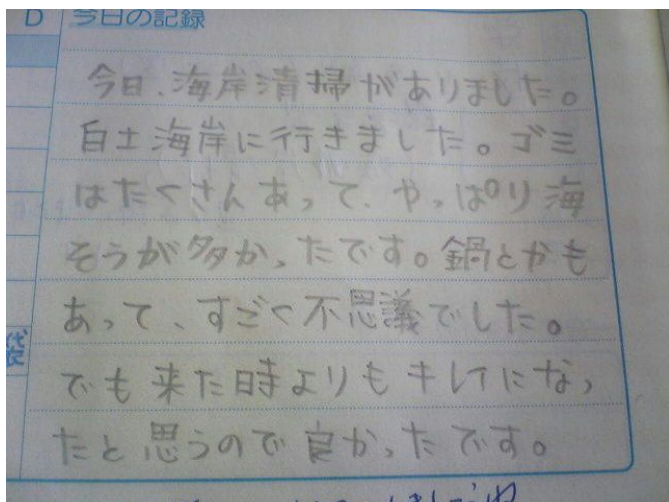 D 今日の記録
今日、海岸清掃がありました。
白土海岸に行きました。ゴミ
はたくさんあって、やっぱり海
そうが多かったです。鍋とかも
あって、すごく不思議でした。
でも来た時よりもキレイになっ
たと思うので良かったです。